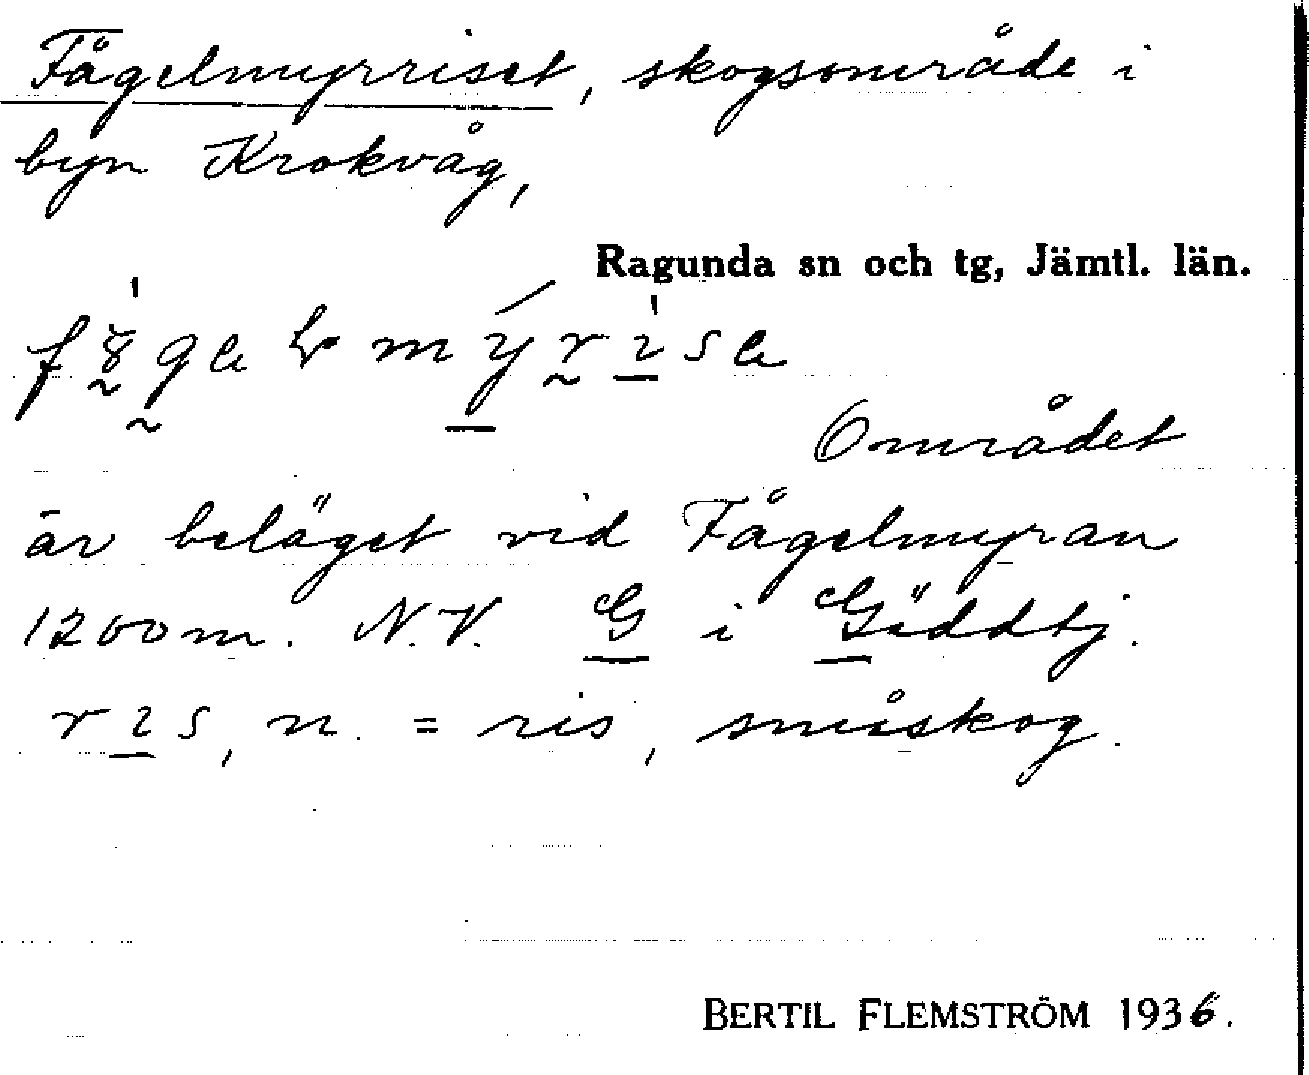 Fågelmyrriset, skogsområde i
byn Krokvåg,
Ragunda sn och tg, Jämtl. län.
Området
är beläget vid Fågelmyran
1200 m. N.V. G i Gäddtj.
r ɩ s, n. = ris, småskog.
BERTIL FLEMSTRÖM 1936.